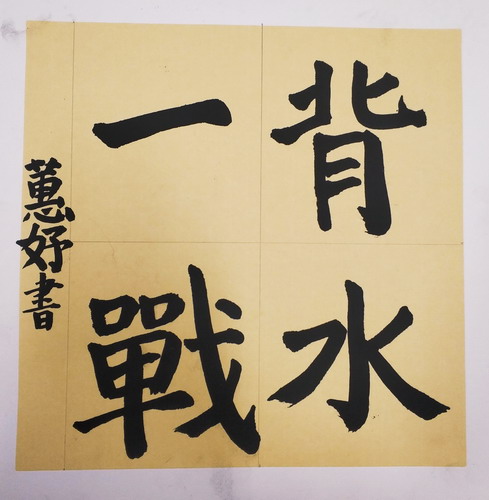 背水
一戰
蕙妤書